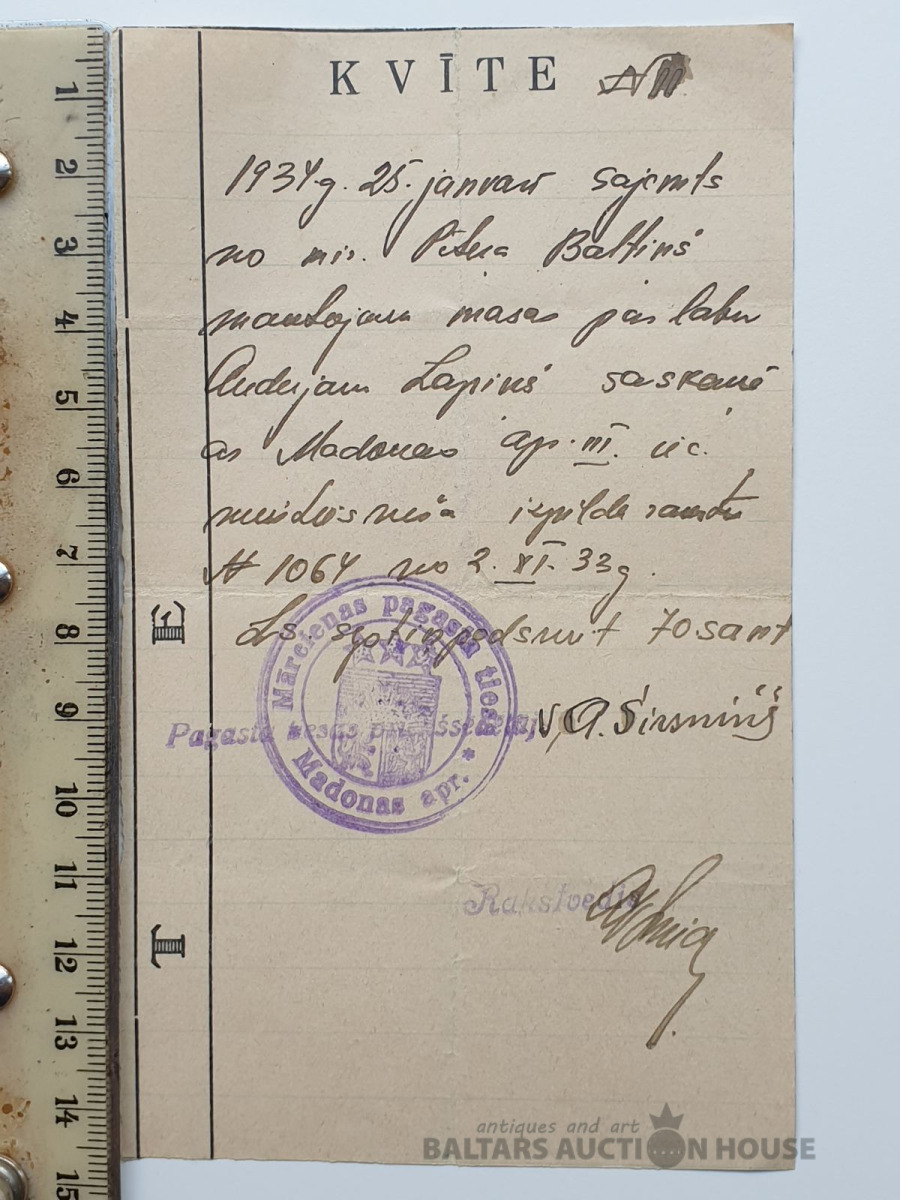 KVĪTE
1934 g. 25. janvarī saņemts
no mir. Pētera Baltiņš
mantojam masas par labu
Andrejam Lapiņš saskaņā
ar Madonas apr. III. iec.
izpildu rakstu
№ 1064 no 2. XI. 33 g.
Ls 70 sant
Mārcienas pagasta tiesa
Madonas apr. *
Pagasta tiesas priekšsēdētājs
Rakstvedis
E
T
1
2
3
4
5
6
7
8
9
10
11
12
13
14
15
antiques and art
BALTARS AUCTION HOUSE